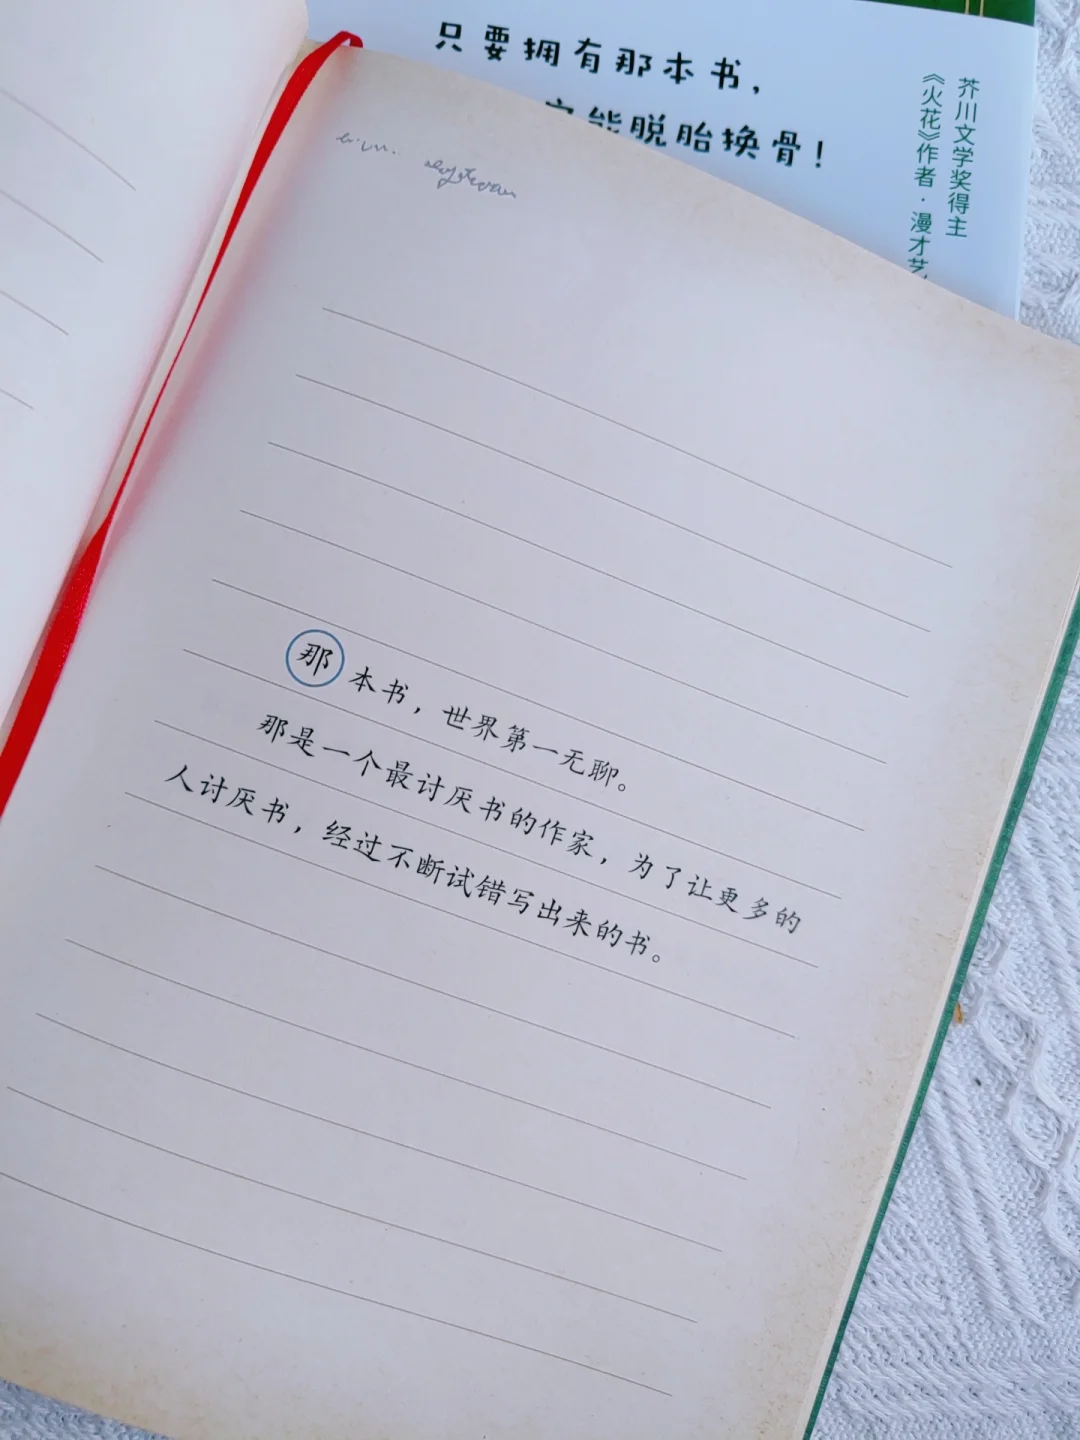 只要拥有那本书，
定能脱胎换骨！
芥川文学奖得主
《火花》作者·漫才艺
那本书，世界第一无聊。
那是一个最讨厌书的作家，为了让更多的
人讨厌书，经过不断试错写出来的书。